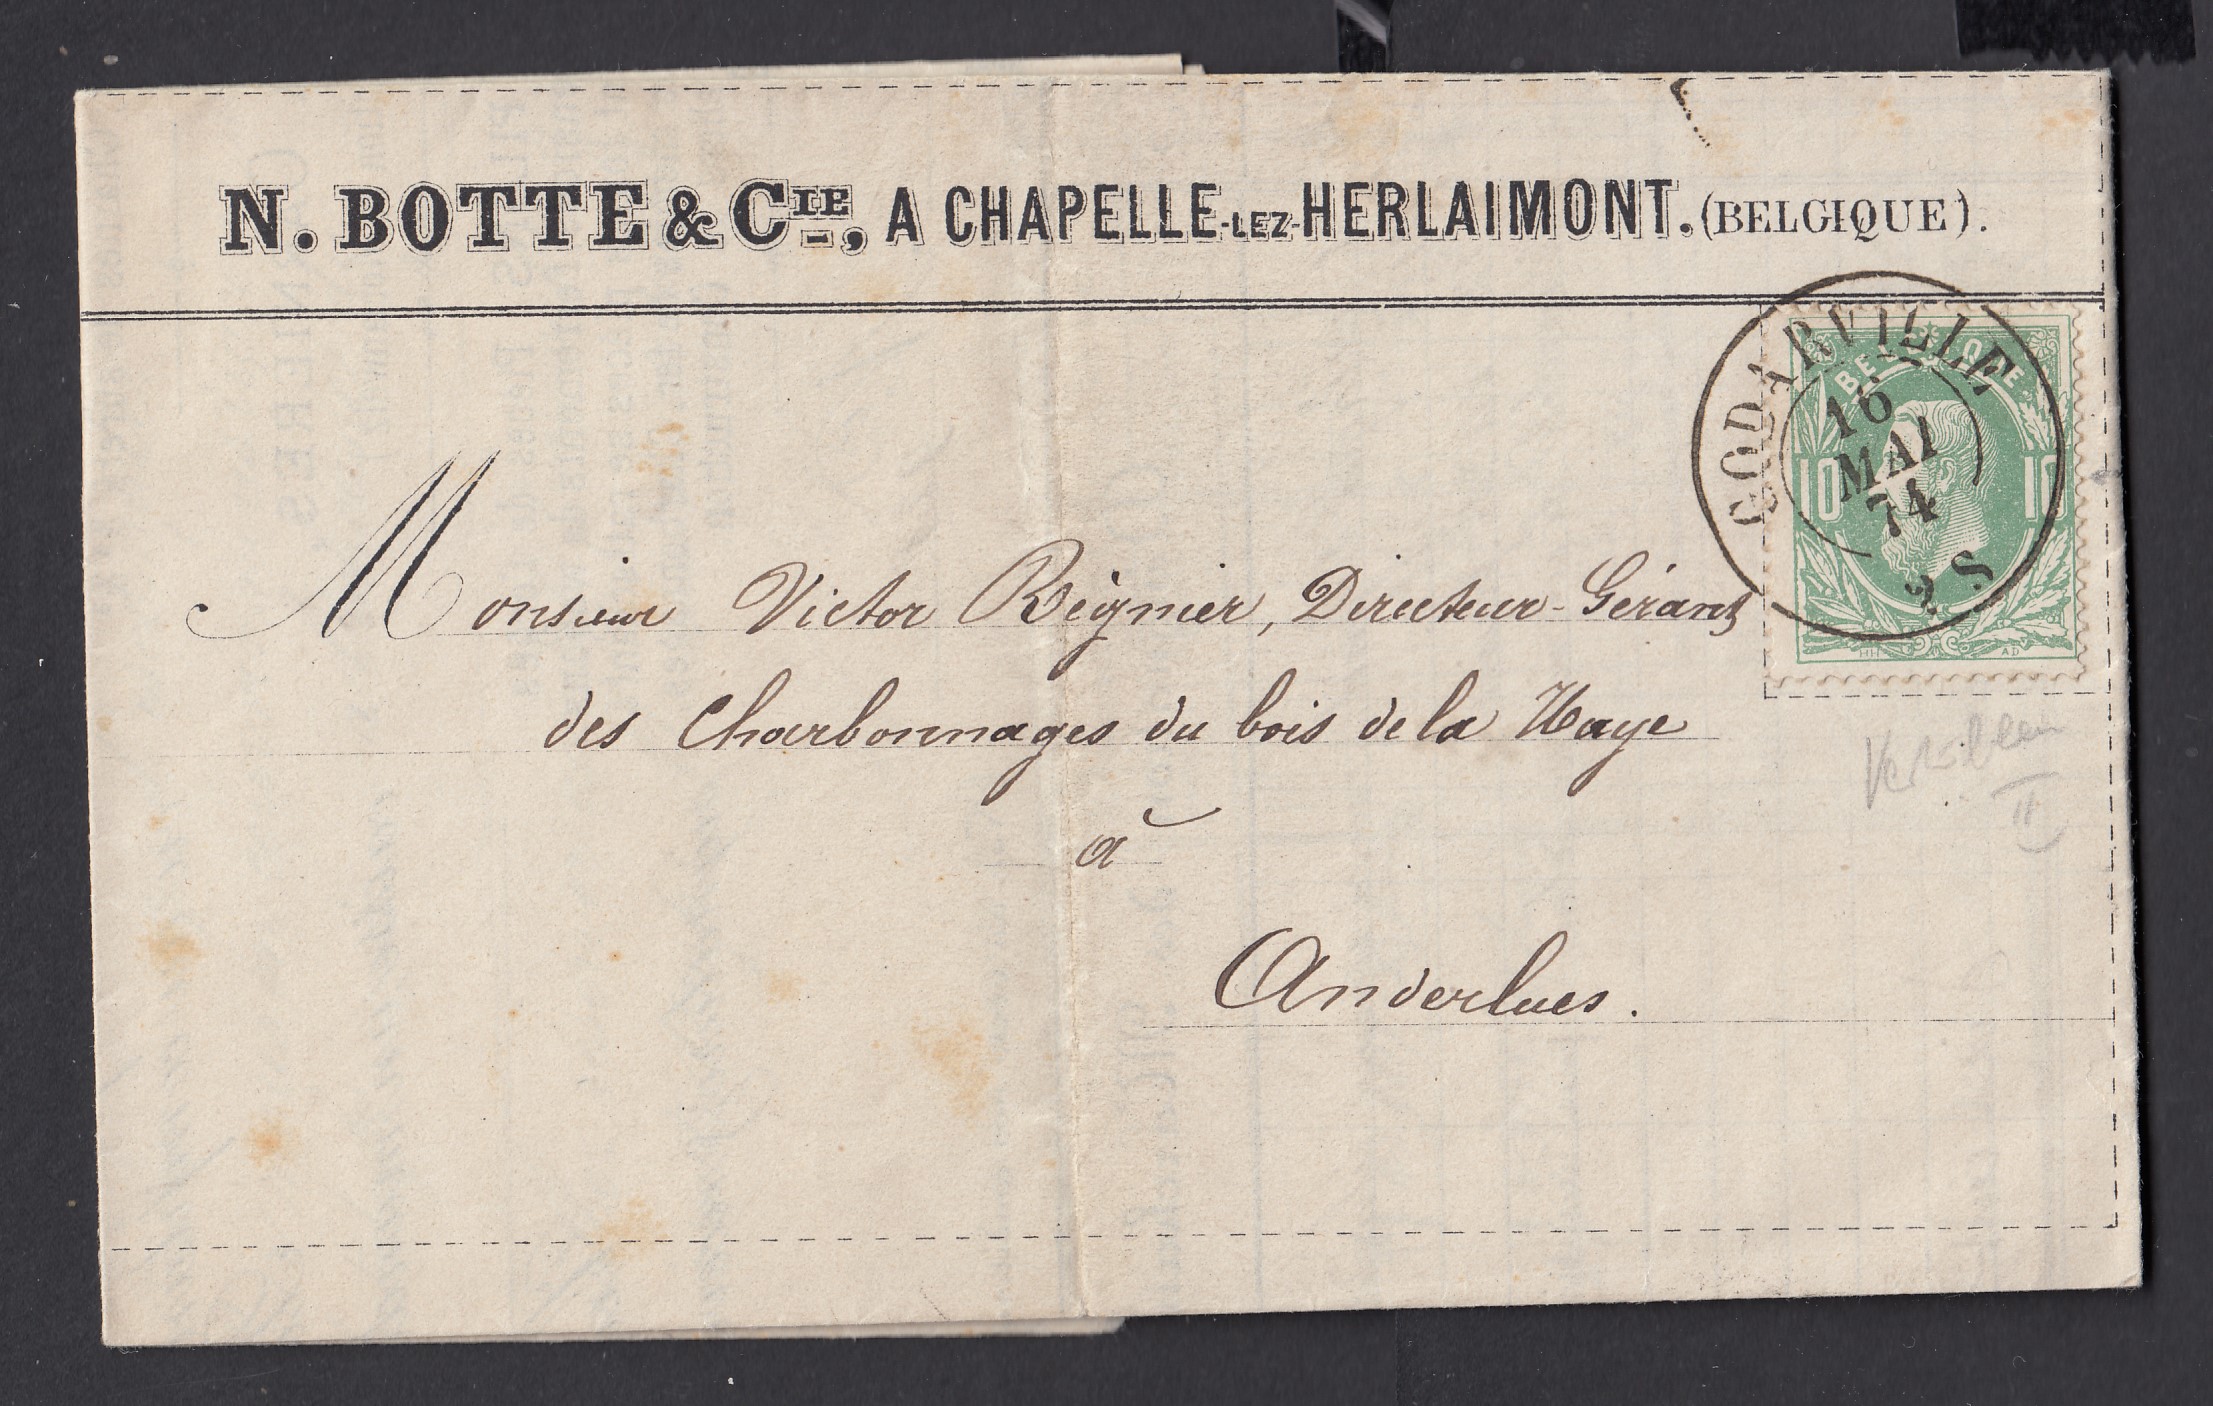 N. BOTTE & CIE, A CHAPELLE-LEZ-HERLAIMONT. (BELGIQUE).
GODARVILLE
16
MAI
74
3 S
BELGIQUE
10 10
HH AD
Monsieur Victor Régnier, Directeur-Gérant
des Charbonnages du bois de la Haye
à
Anderlues.
II